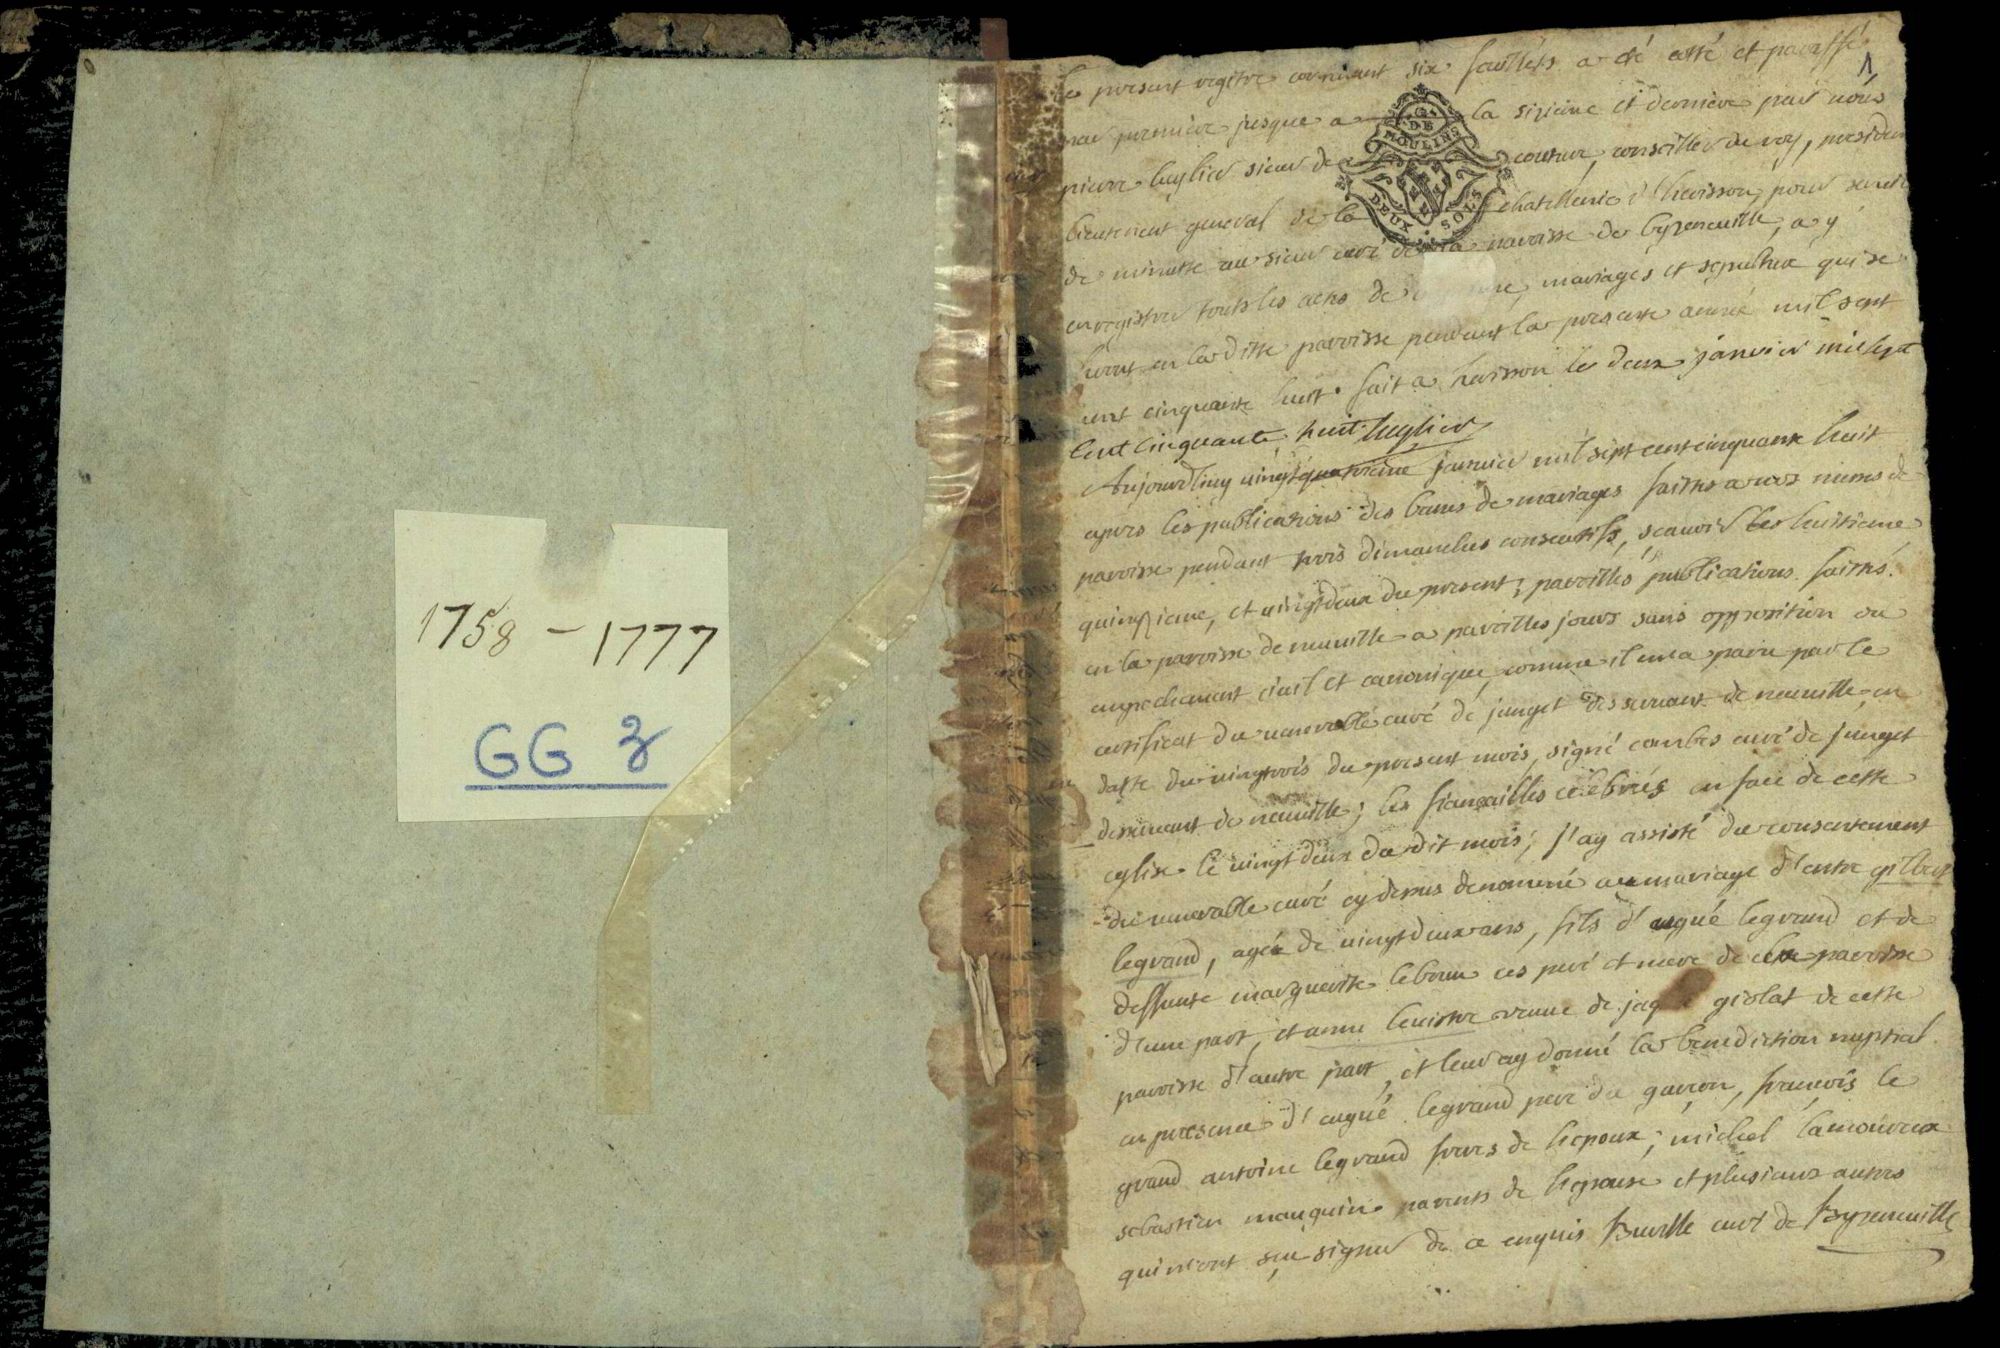 1758 - 1777
GG 3
1
le present registre contenant six feuillets a eté cotté et paraffé
par premiere jusque a la sixieme et derniere par nous
pierre luylier sieur de couture, conseiller du roy, president
lieutenant general de la chatellenie d'herisson, pour servir
de minutte au sieur curé de la paroisse de byzeneuille, a y
enregistrer touts les actes de mariages et sepulture qui se
feront en la ditte paroisse pendant la presente année mil sept
cent cinquante huit. fait a herisson le deux janvier mil sept
cent cinquante huit. luylier
G. DE MOULINS
DEUX SOLS
Aujourdhuy vingt quatrieme januier mil sept cent cinquante huit
apres les publications des bans de mariages faittes a nos messes de
paroisse pendant trois dimanches consecutifs, scauoir les huitieme
quinzieme, et vingt deux du present; pareilles publications faittes
en la paroisse de neuuille a pareilles jours sans opposition ou
empechement ciuil et canonique, comme il m'a paru par le
certificat du venerable curé de junget desseruant de neuuille en
datte du vingt trois du present mois, signé combes curé de junget
desseruant de neuuille; les fiancailles celebrés en face de cette
eglise le vingt deux du dit mois; j'ay assisté du consentement
du venerable curé cy dessus denommé au mariage d'entre gilbert
legrand, agée de vingt deux ans, fils d' legrand et de
deffunte marguerite lebour ces peré et mere de cette paroisse
d'une part, et anne leuistre veuue de jaque giolat de cette
paroisse d'autre part, et leur ay donné la benediction nuptial
en presence d' legrand pere du garcon, francois le
grand antoine legrand freres de l'epoux; michel lamoureux
sebastien mauquin parents de l'epouse et plusieurs autres
qui n'ont sçu signer de ce enquis Burelle curé de Byzeneuille